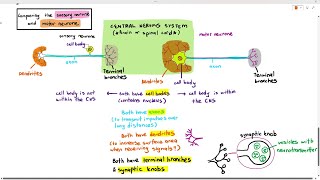 Comparing the sensory neurone
and motor neurone.
CENTRAL NERVOUS SYSTEM
(brain or spinal cord)
sensory neurone
motor neurone
cell body
axon
axon
dendrites
terminal
branches
dendrites
cell body
terminal
branches
cell body is not
within the CNS
both have cell bodies
(contains nucleus)
cell body is within
the CNS
Both have axons
(to transmit impulses over
long distances)
Both have dendrites
(to increase surface area
when receiving signals)
Both have terminal branches
& synaptic knobs
synaptic knob
vesicles with
neurotransmitter